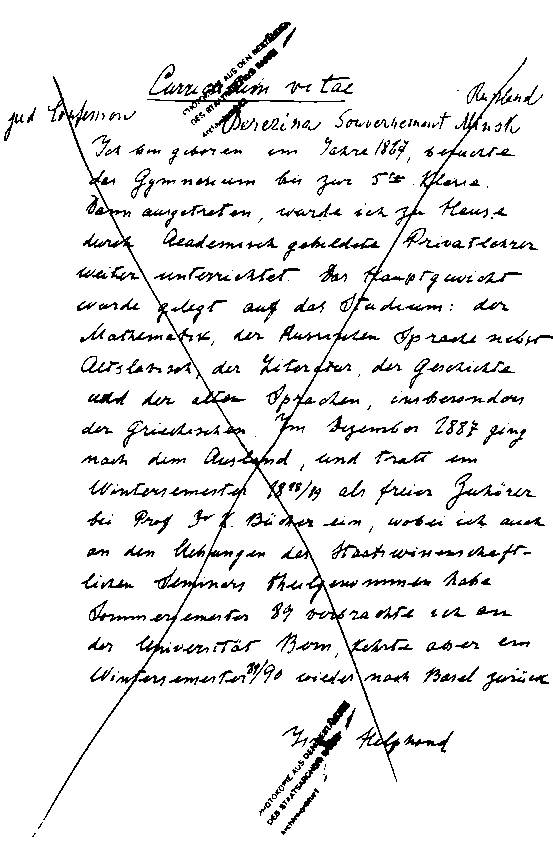 PHOTOKOPIE AUS DEN BESTÄNDEN
DES STAATSARCHIVS BASEL
Curriculum vitae
jüd Confession
Rußland
Berezina Gouvernement Minsk
Ich bin geboren im Jahre 1867, besuchte
das Gymnasium bis zur 5ten Klasse.
Dann ausgetreten, wurde ich zu Hause
durch Academisch gebildete Privatlehrer
weiter unterrichtet. Das Hauptgewicht
wurde gelegt auf das Studium: der
Mathematik, der Russischen Sprache nebst
Altslavisch, der Literatur, der Geschichte
und der alten Sprachen, insbesonders
der Griechischen. Im Dezember 1887 ging
nach dem Ausland, und tratt im
Wintersemester 1888/89 als freier Zuhörer
bei Prof Dr K. Bücher ein, wobei ich auch
an den Uebungen des Staatswissenschaft-
lichen Seminars theilgenommen habe
Sommersemester 89 verbrachte ich an
der Universität Bern, kehrte aber im
Wintersemester 89/90 wieder nach Basel zurück
Helphand
PHOTOKOPIE AUS DEN BESTÄNDEN
DES STAATSARCHIVS BASEL